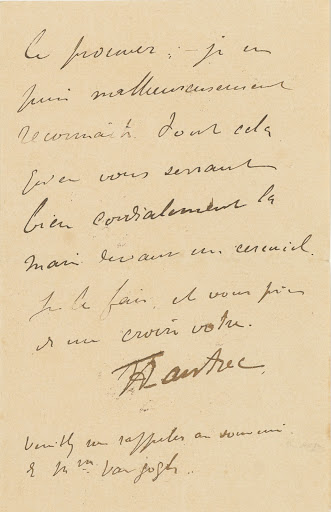 le prouver, – je ne
puis malheureusement
reconnaître tout cela
qu'en vous serrant
bien cordialement la
main devant un cercueil.
Je le fais, et vous prie
de me croire votre.
HTLautrec
Veuillez me rappeler au souvenir
de Mme Van Gogh.